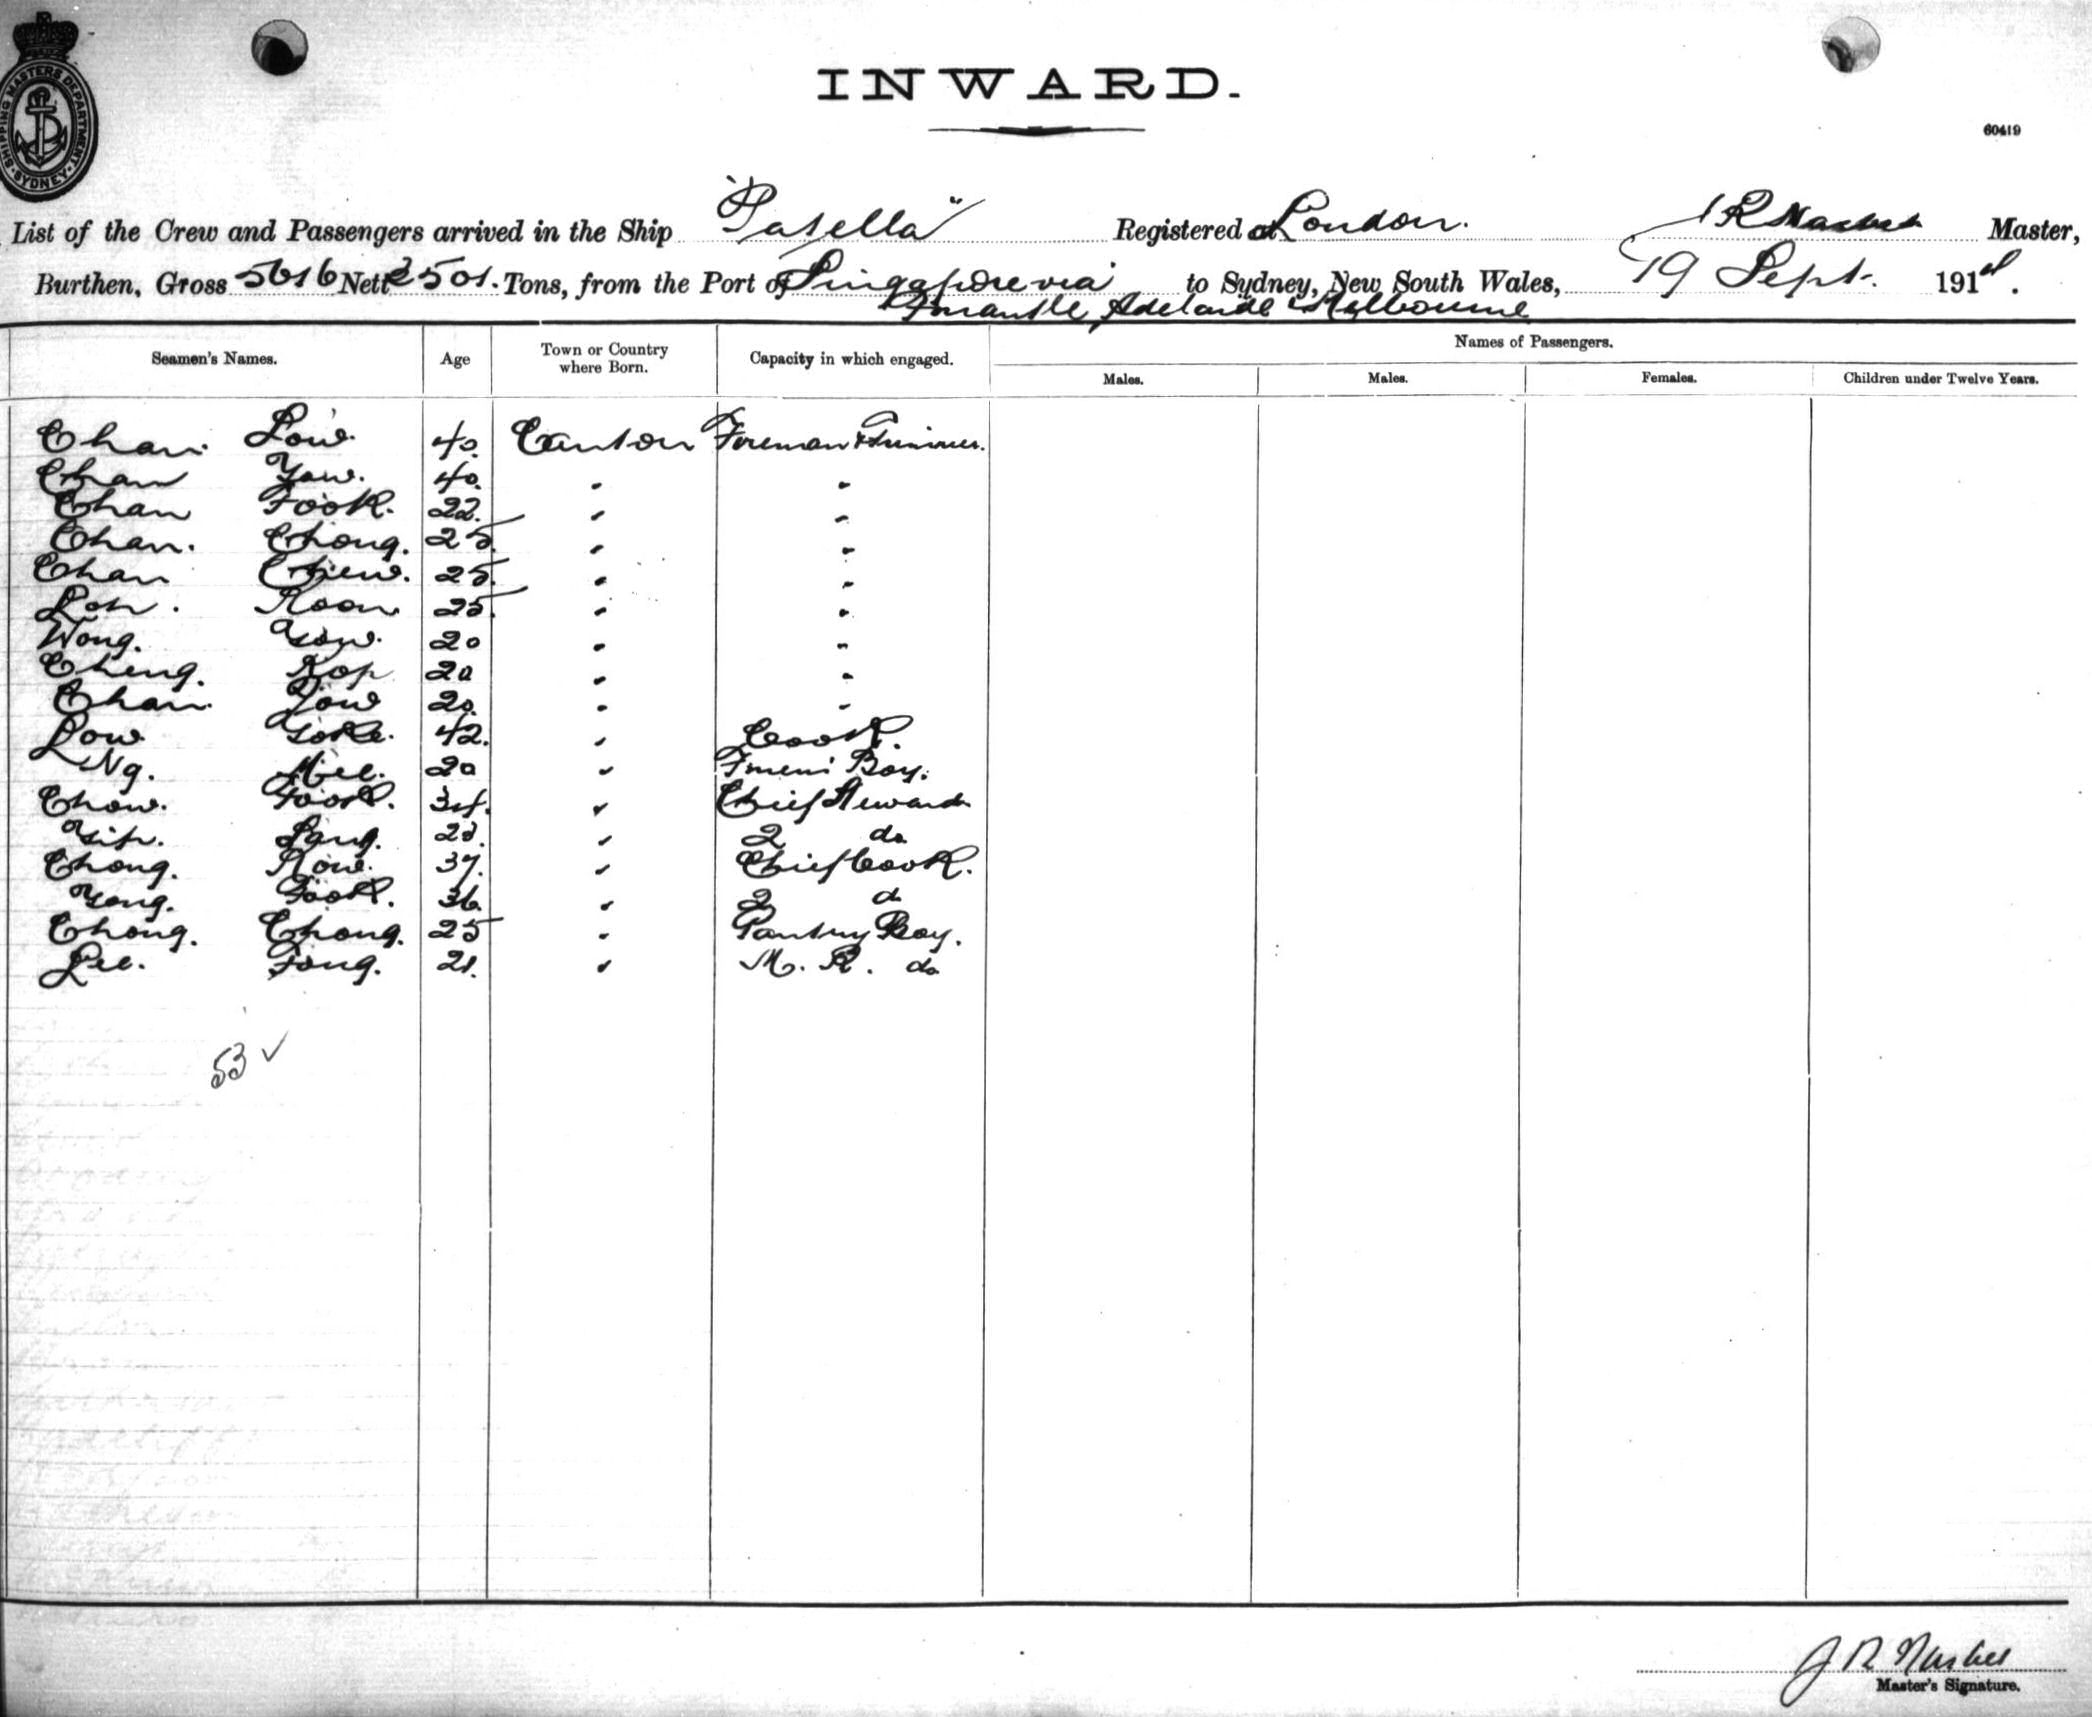 SHIPPING MASTERS DEPARTMENT
SYDNEY
INWARD.
60419
List of the Crew and Passengers arrived in the Ship "Patella" Registered at London. J R Master,
Burthen, Gross 5616 Nett 3501. Tons, from the Port of Singapore via to Sydney, New South Wales, 19 Sept. 191
Fremantle Adelaide & Melbourne
Seamen's Names. Age Town or Country where Born. Capacity in which engaged. Names of Passengers.
Males. Males. Females. Children under Twelve Years.
Chan Low. 40. Canton Fireman & Trimmer.
Chan Yow. 40. " "
Chan Fook. 22. " "
Chan. Chong. 25. " "
Chan Chew. 25. " "
Loh. Koon 25. " "
Wong. Yow. 20 " "
Cheng. Kop 20 " "
Chan. Yow 20. " "
Low Yoke. 42. " Cook.
Ng. Mee. 20 " Firemen's Boy.
Chow. Fook. 34. " Chief Steward
Yip. Lang. 23. " 2 do
Chong. Kow. 37. " Chief Cook.
Yong. Fook. 36. " 2 do
Chong. Chong. 25 " Pantry Boy.
Lee. Fong. 21. " M. R. do
53 ✓
J R
Master's Signature.